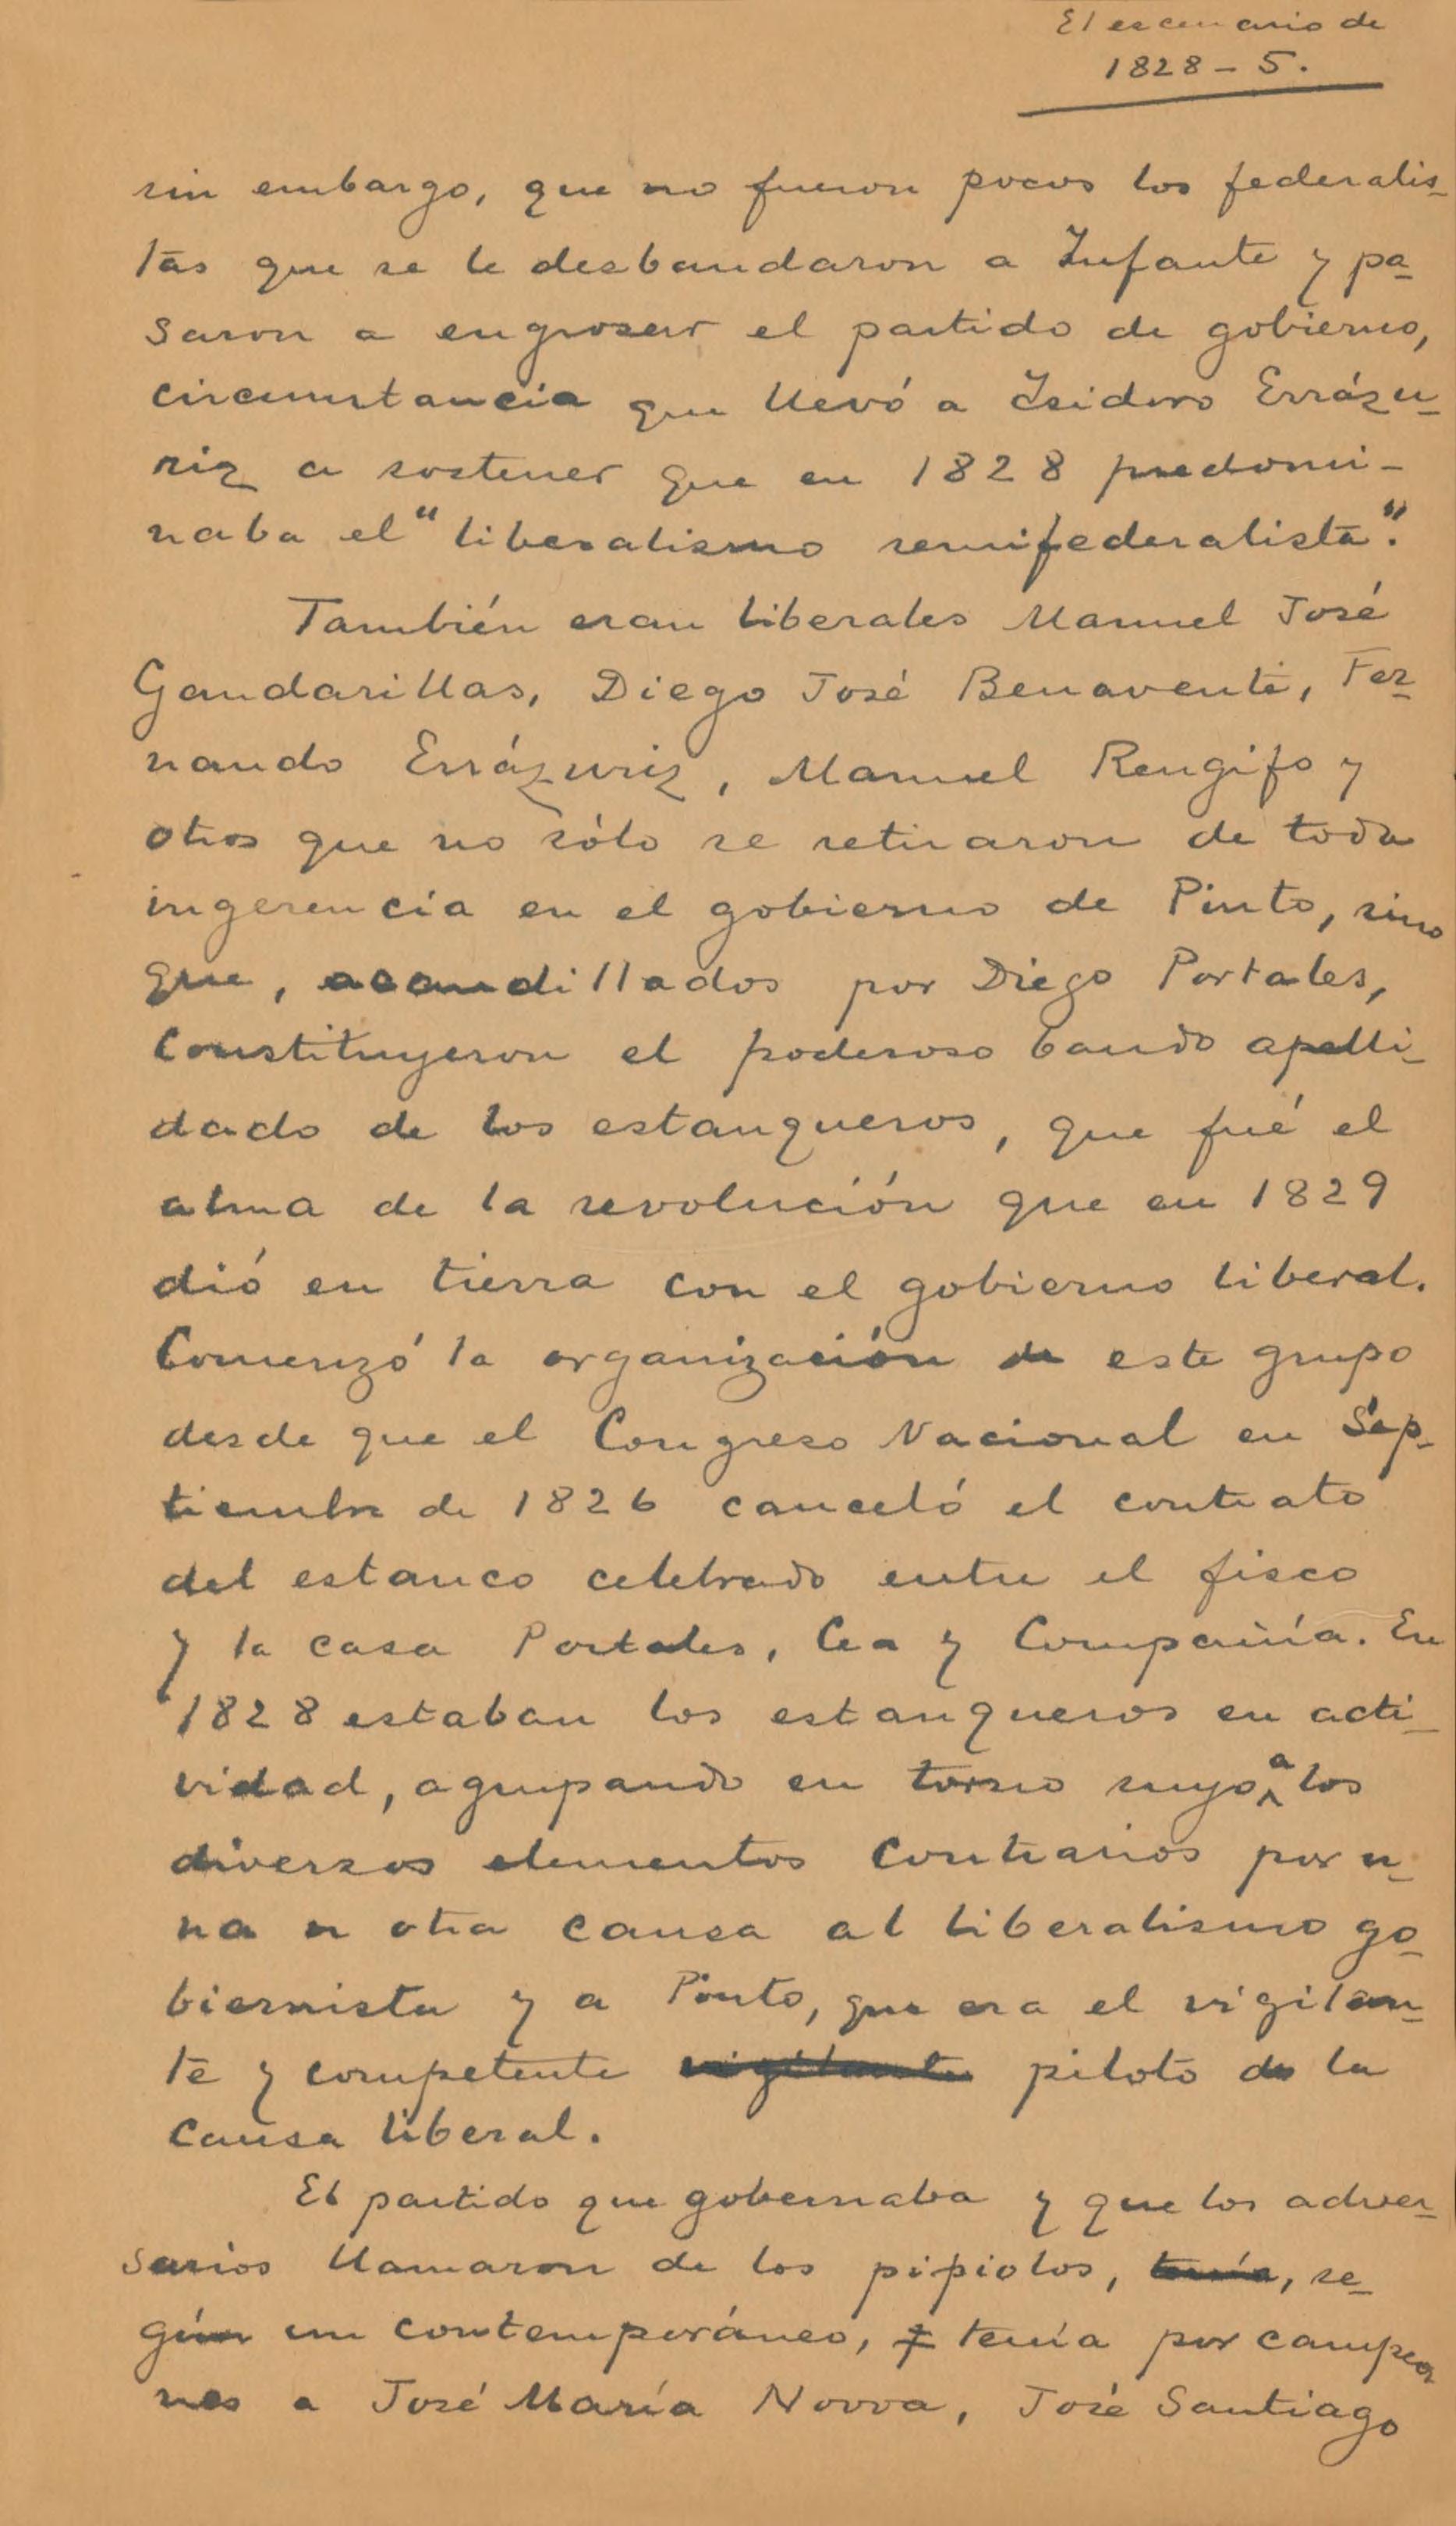 El escenario de
1828 - 5.
sin embargo, que no fueron pocos los federalis-
tas que se le desbandaron a Infante y pa-
saron a engrosar el partido de gobierno,
circunstancia que llevó a Isidoro Errázu-
riz a sostener que en 1828 predomi-
naba el "liberalismo semifederalista".
También eran liberales Manuel José
Gandarillas, Diego José Benavente, Fer-
nando Errázuriz, Manuel Rengifo y
otros que no sólo se retiraron de toda
ingerencia en el gobierno de Pinto, sino
que, acaudillados por Diego Portales,
constituyeron el poderoso bando apelli-
dado de los estanqueros, que fué el
alma de la revolución que en 1829
dió en tierra con el gobierno liberal.
Comenzó la organización de este grupo
desde que el Congreso Nacional en Sep-
tiembre de 1826 canceló el contrato
del estanco celebrado entre el fisco
y la casa Portales, Cea y Compañía. En
1828 estaban los estanqueros en acti-
vidad, agrupando en torno suyo a los
diversos elementos contrarios por u-
na u otra causa al liberalismo go-
biernista y a Pinto, que era el vigilan-
te y competente vigilante piloto de la
causa liberal.
El partido que gobernaba y que los adver-
sarios llamaron de los pipiolos, tenía, se-
gún un contemporáneo, tenía por campeo-
nes a José María Novoa, José Santiago